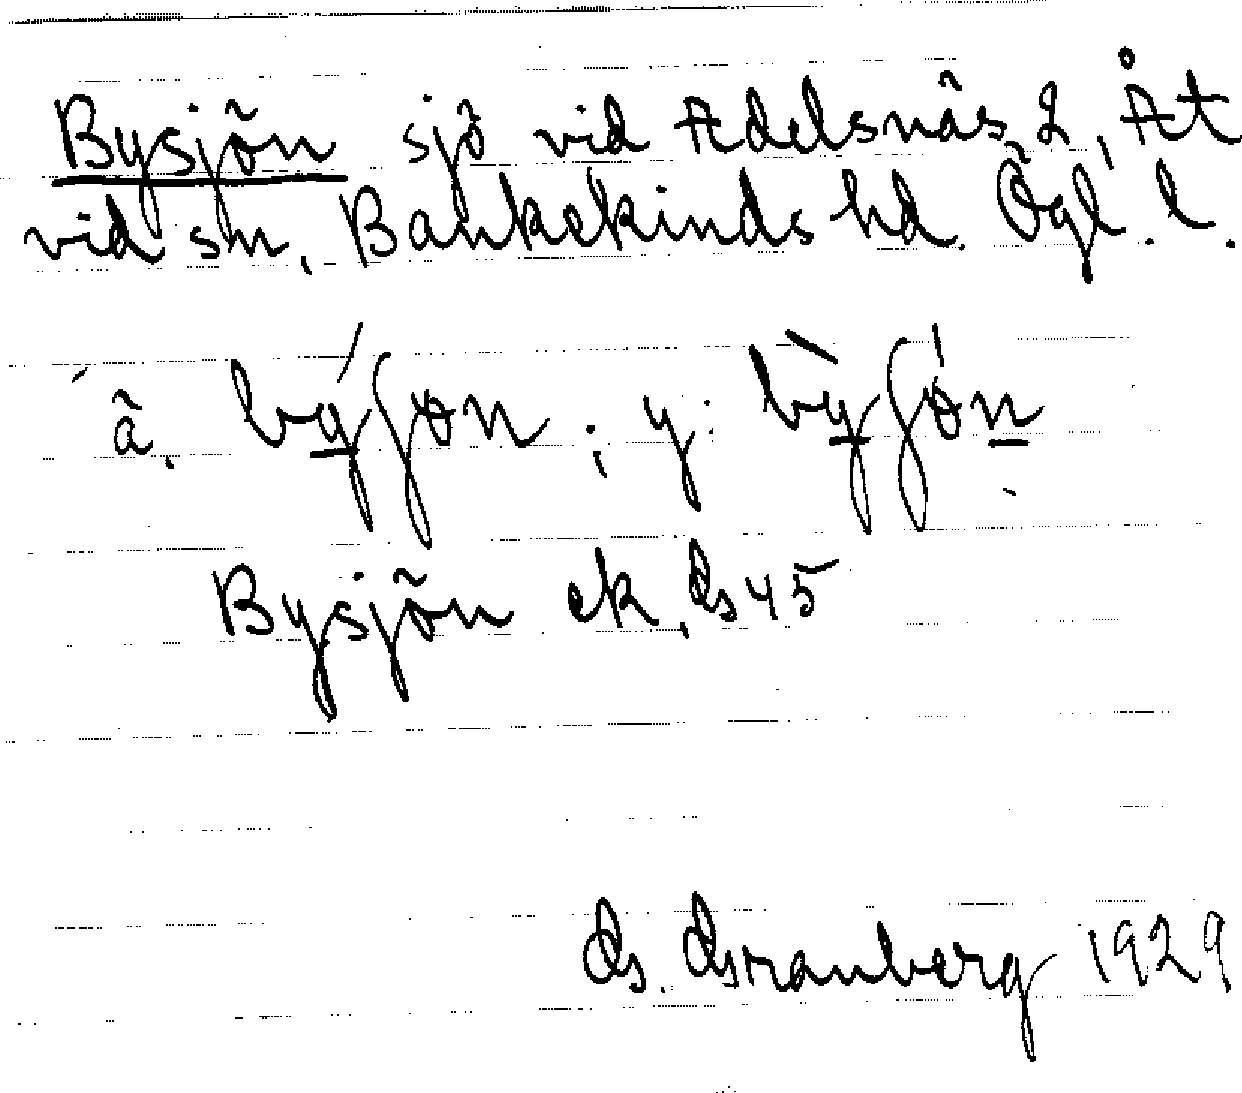 Bysjön sjö vid Adelsnäs 2, Åt
vid sn, Bankekinds hd. Ögl. l.
ä. býʃøn; y. bỳʃǿn
Bysjön ek. Gs 45
G. Granberg 1929